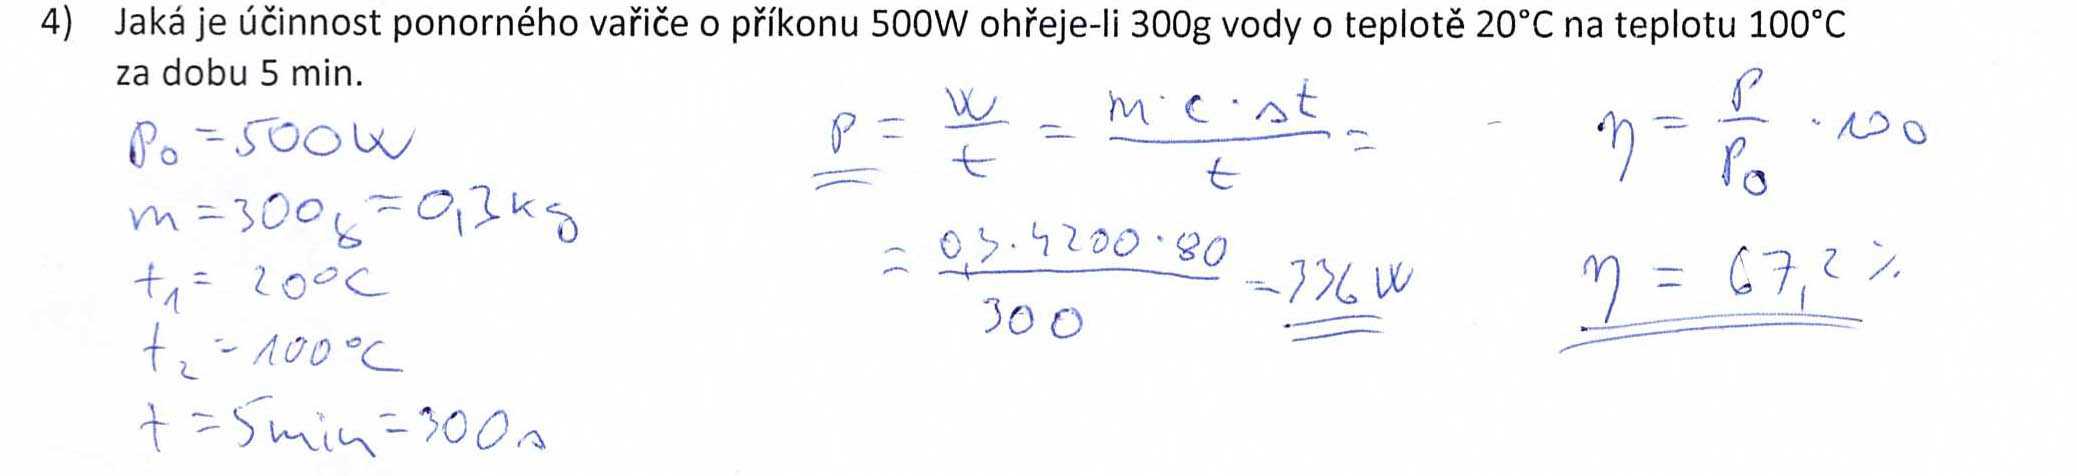 4) Jaká je účinnost ponorného vařiče o příkonu 500W ohřeje-li 300g vody o teplotě 20°C na teplotu 100°C
za dobu 5 min.
P₀ = 500W
m = 300g = 0,3kg
t₁ = 20°C
t₂ = 100°C
t = 5min = 300s
P = W/t = m·c·Δt/t =
= 0,3·4200·80/300 = 336W
η = P/P₀ · 100
η = 67,2%